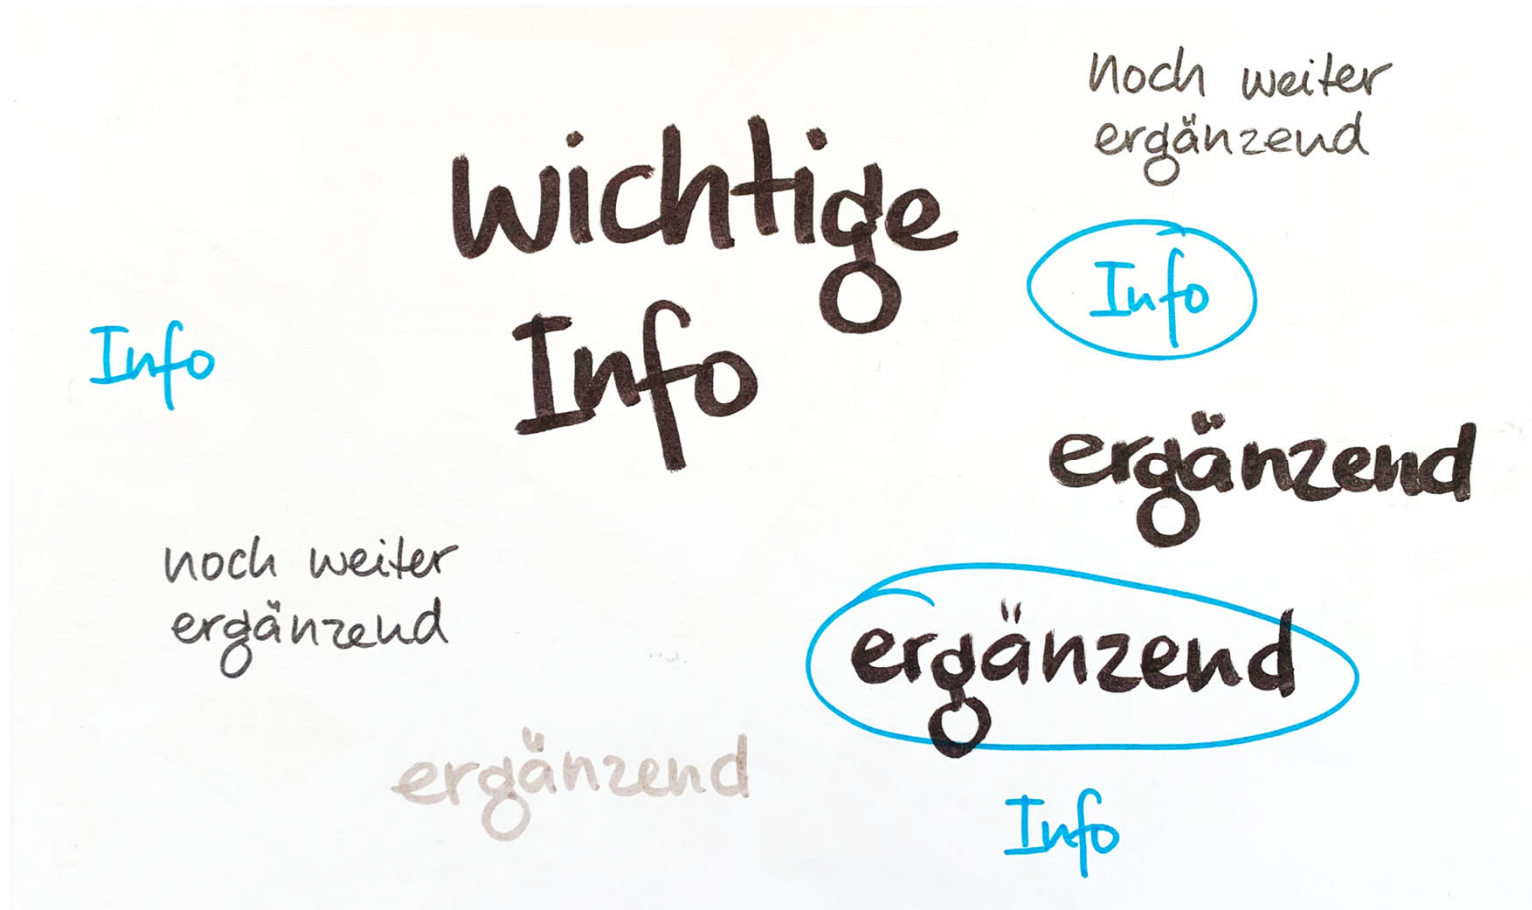 noch weiter
ergänzend
wichtige
Info
Info
Info
ergänzend
noch weiter
ergänzend
ergänzend
ergänzend
Info